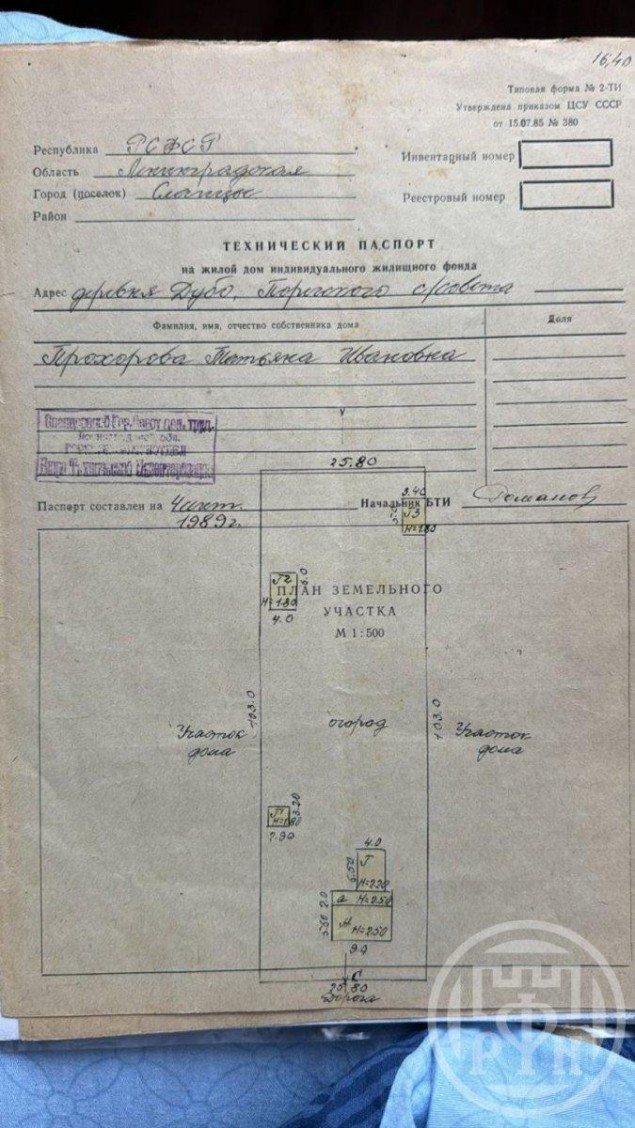 16,40
Типовая форма № 2-ТИ
Утверждена приказом ЦСУ СССР
от 15.07.85 № 380
Республика РСФСР
Область Ленинградская
Город (поселок) Сланцы
Район
Инвентарный номер
Реестровый номер
ТЕХНИЧЕСКИЙ ПАСПОРТ
на жилой дом индивидуального жилищного фонда
Адрес деревня Дубо, с/совета
Фамилия, имя, отчество собственника дома
Доля
Прохорова Татьяна Ивановна
Бюро Технической Инвентаризации
25.80
Паспорт составлен на 1989г.
Начальник БТИ Романов
3.40
Г3
Г2
6.0
4.0
ПЛАН ЗЕМЕЛЬНОГО
УЧАСТКА
М 1:500
103.0
103.0
огород
Участок
дома
Участок
дома
3.20
4.0
Г
5.50
Н=2.20
2.0
а Н=2.50
Ж
Н=2.50
9.0
С
25.80
Дорога
РГП